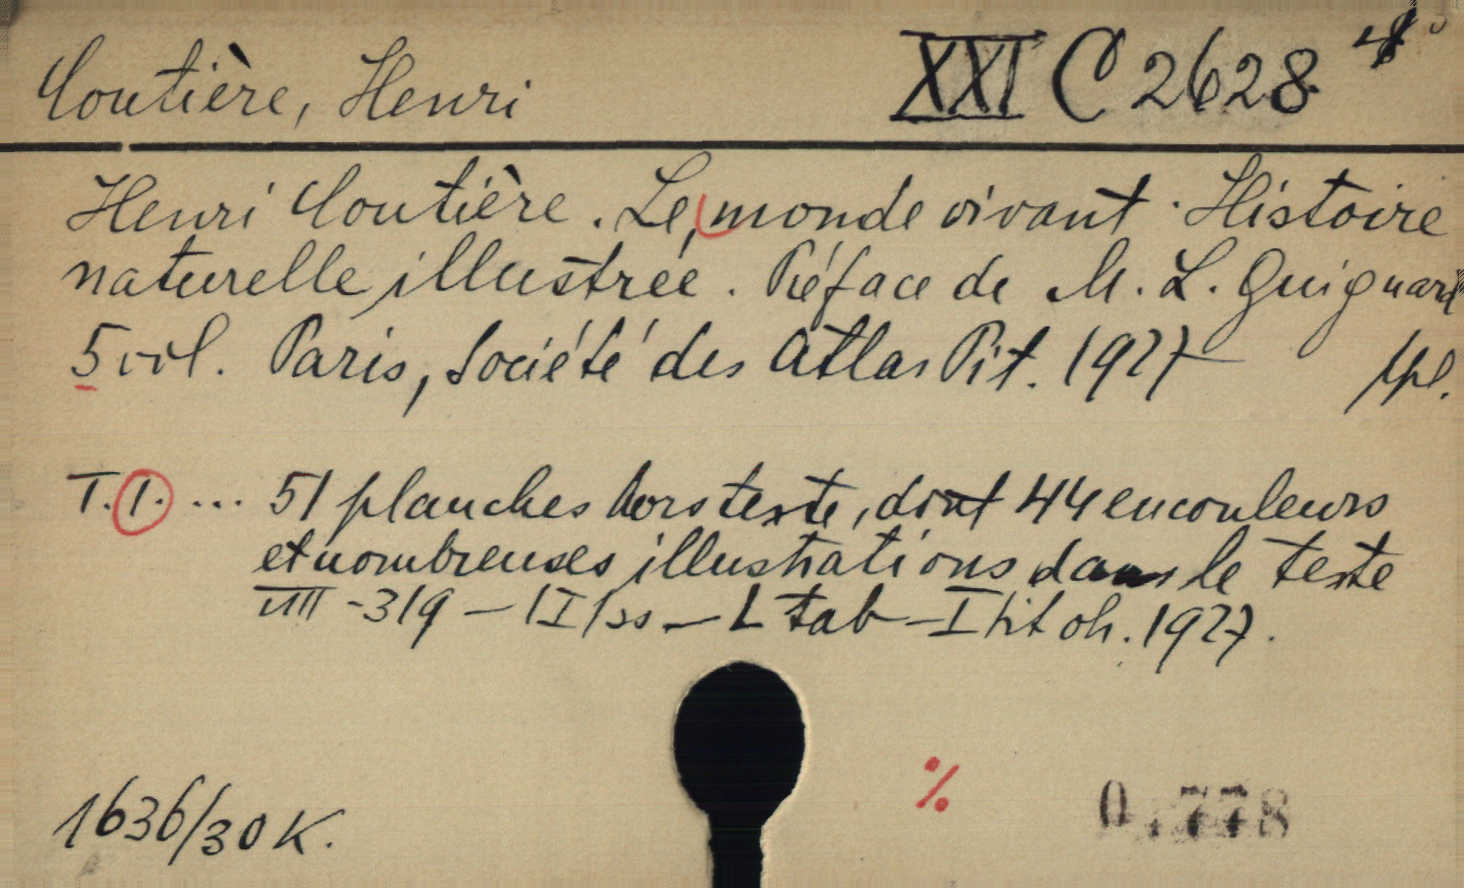 Coutière, Henri XXI C 2628
Henri Coutière. Le monde vivant. Histoire
naturelle illustrée. Préface de M. L. Guignard
5 vol. Paris, Société des Atlas Pit. 1927
T. 1. ... 51 planches hors texte, dont 44 en couleurs
et nombreuses illustrations dans le texte
VIII - 319 - L tab - I tit oh. 1927.
1636/30 K. %